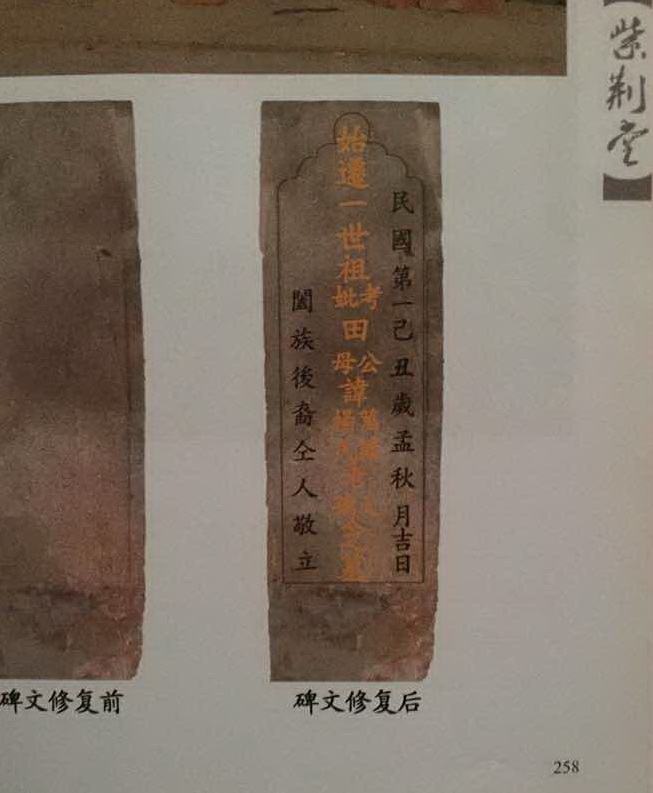 紫荆堂
民國第一己丑歲孟秋月吉日
始遷一世祖考妣田公母諱
闔族後裔仝人敬立
碑文修复前
碑文修复后
258